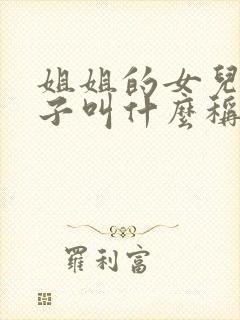 姐姐的女兒
子叫什麼稱
羅利富